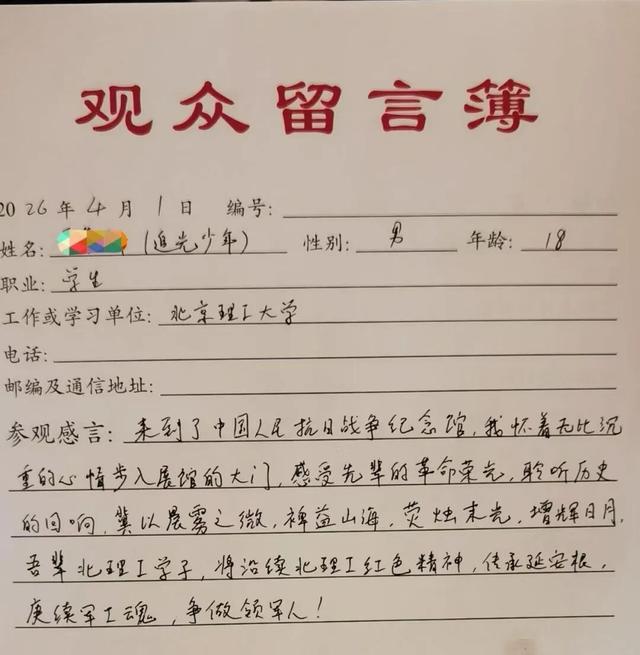 观众留言簿
2026年4月1日 编号:
姓名: (追光少年) 性别: 男 年龄: 18
职业: 学生
工作或学习单位: 北京理工大学
电话:
邮编及通信地址:
参观感言: 来到了中国人民抗日战争纪念馆,我怀着无比沉
重的心情步入展馆的大门,感受先辈的革命荣光,聆听历史
的回响,冀以晨雾之微,裨益山海,荧烛末光,增辉日月,
吾辈北理工学子,将沿续北理工红色精神,传承延安根,
赓续军工魂,争做领军人!